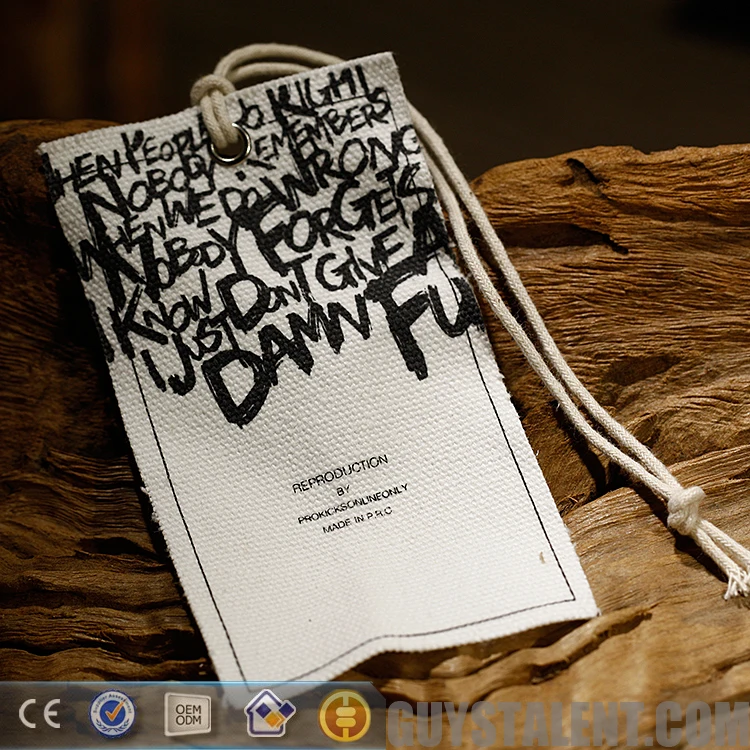 WHEN PEOPLE DO RIGHT
NOBODY REMEMBERS
WHEN WE DO WRONG
NOBODY FORGETS
KNOW DON'T GIVE A
I JUST DAMN FU
REPRODUCTION
BY
PROKICKSONLINEONLY
MADE IN P.R.C
CE
OEM
ODM
GUYSTALENT.COM